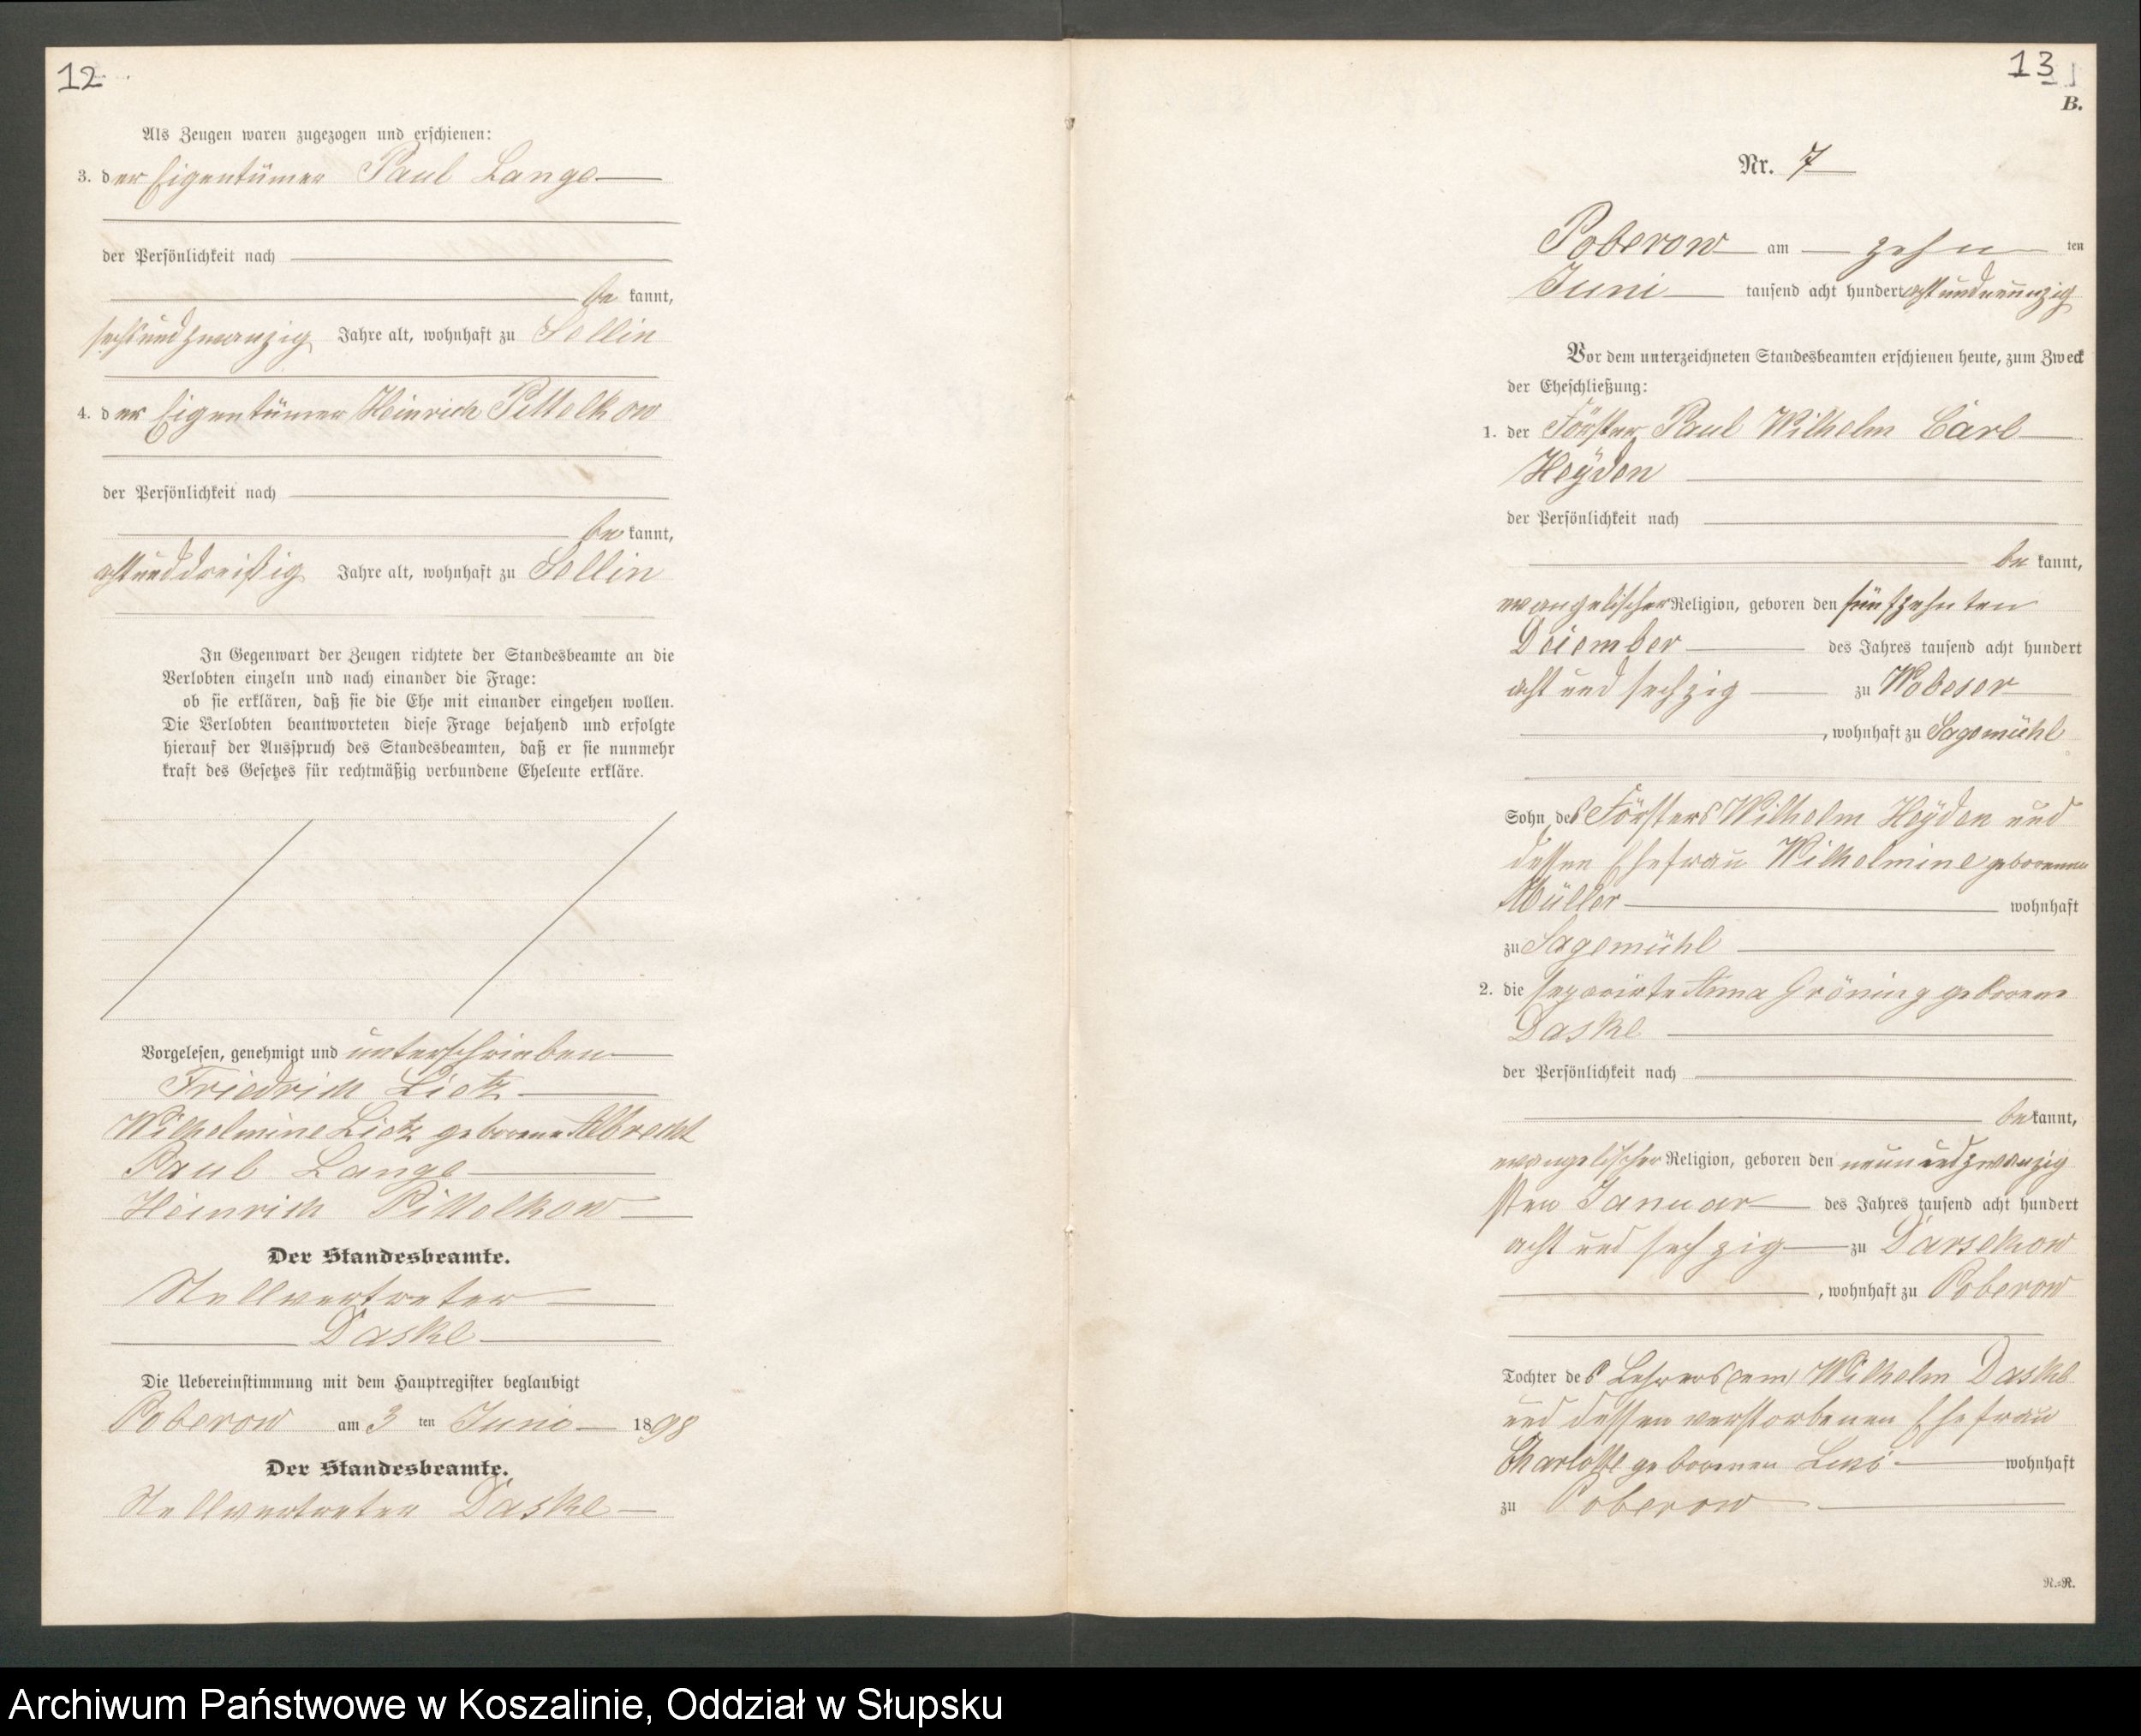 12
Als Zeugen waren zugezogen und erschienen:
3. der Eigentümer Paul Lange
der Persönlichkeit nach
be kannt,
sechsundzwanzig Jahre alt, wohnhaft zu Sellin
4. der Eigentümer Heinrich Pittelkow
der Persönlichkeit nach
be kannt,
achtunddreißig Jahre alt, wohnhaft zu Sellin
In Gegenwart der Zeugen richtete der Standesbeamte an die
Verlobten einzeln und nach einander die Frage:
ob sie erklären, daß sie die Ehe mit einander eingehen wollen.
Die Verlobten beantworteten diese Frage bejahend und erfolgte
hierauf der Ausspruch des Standesbeamten, daß er sie nunmehr
kraft des Gesetzes für rechtmäßig verbundene Eheleute erkläre.
Vorgelesen, genehmigt und unterschrieben
Friedrich Lietz
Wilhelmine Lietz geborene Albrecht
Paul Lange
Heinrich Pittelkow
Der Standesbeamte.
Stellvertreter
Daske
Die Uebereinstimmung mit dem Hauptregister beglaubigt
Poberow am 3 ten Juni 1898
Der Standesbeamte.
Stellvertreter Daske
13
B.
Nr. 7
Poberow am zehn ten
Juni tausend acht hundert achtundneunzig
Vor dem unterzeichneten Standesbeamten erschienen heute, zum Zweck
der Eheschließung:
1. der Förster Paul Wilhelm Carl
Heyden
der Persönlichkeit nach
be kannt,
evangelischer Religion, geboren den fünfzehnten
Dezember des Jahres tausend acht hundert
acht und sechzig zu Wobeser
, wohnhaft zu Sagemühl
Sohn des Försters Wilhelm Heyden und
dessen Ehefrau Wilhelmine geborenen
Müller wohnhaft
zu Sagemühl
2. die separirte Anna Gröning geborene
Daske
der Persönlichkeit nach
be kannt,
evangelischer Religion, geboren den neun und zwanzig
sten Januar des Jahres tausend acht hundert
acht und sechzig zu Darsekow
, wohnhaft zu Poberow
Tochter des Lehrers em Wilhelm Daske
und dessen verstorbenen Ehefrau
Charlotte geborenen wohnhaft
zu Poberow
R.=R.
Archiwum Państwowe w Koszalinie, Oddział w Słupsku